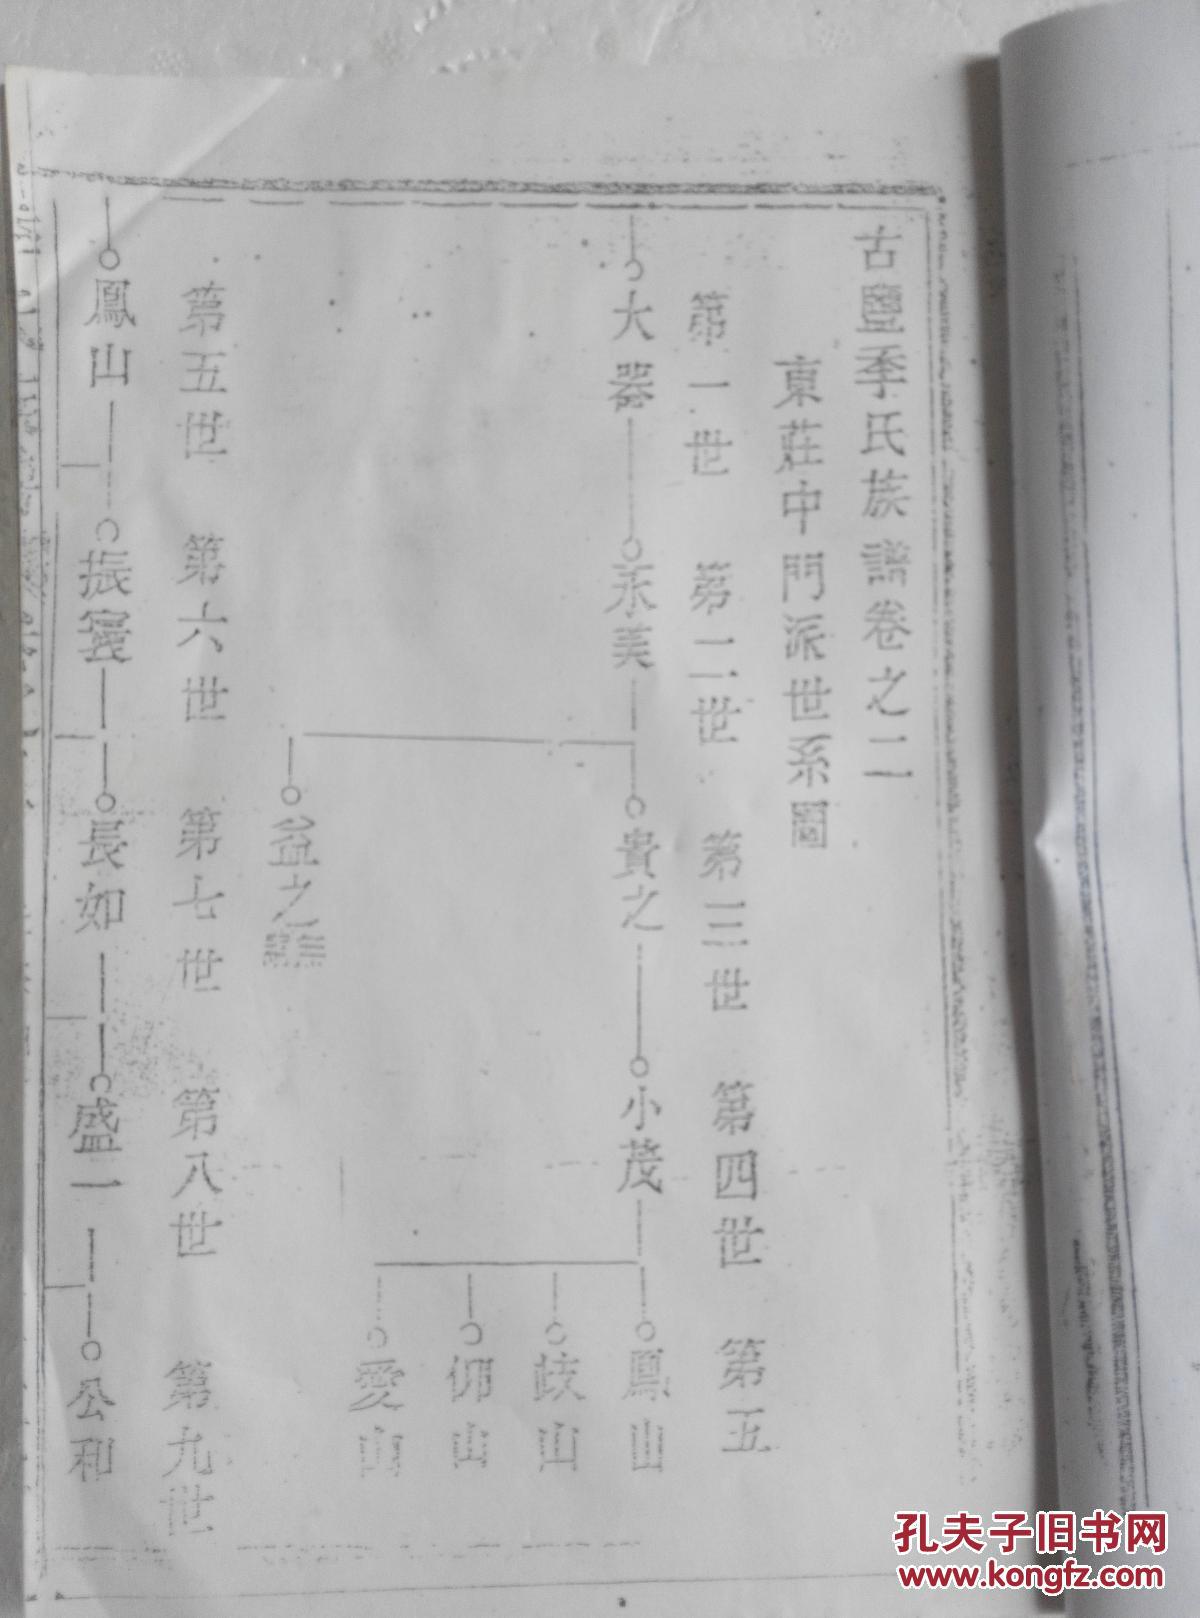 古鹽季氏族譜卷之二
東莊中門派世系圖
第一世 第二世 第三世 第四世 第五
大器 永美 貴之 小茂 鳳山
岐山
仰山
愛山
益之
第五世 第六世 第七世 第八世 第九世
鳳山 振寰 長如 盛一 公和
孔夫子旧书网
www.kongfz.com